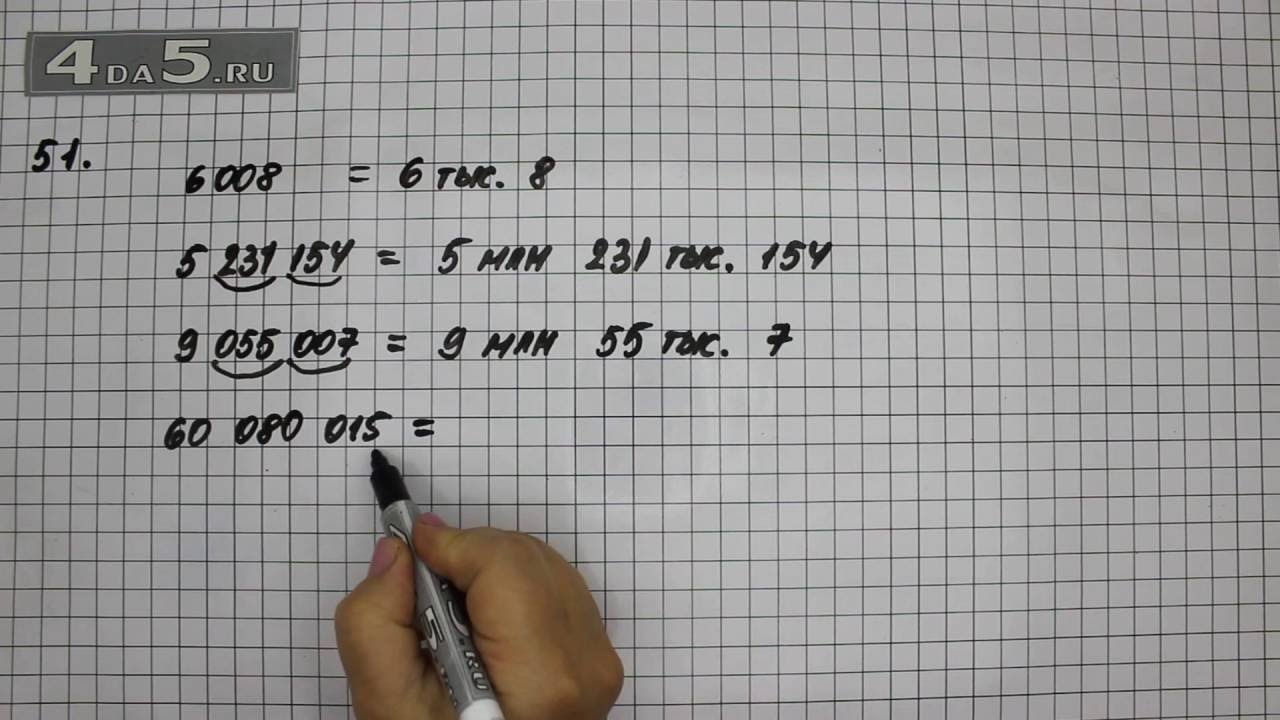 4DA5.RU
51.
6 008 = 6 тыс. 8
5 231 154 = 5 млн 231 тыс. 154
9 055 007 = 9 млн 55 тыс. 7
60 080 015 =
5
.RU